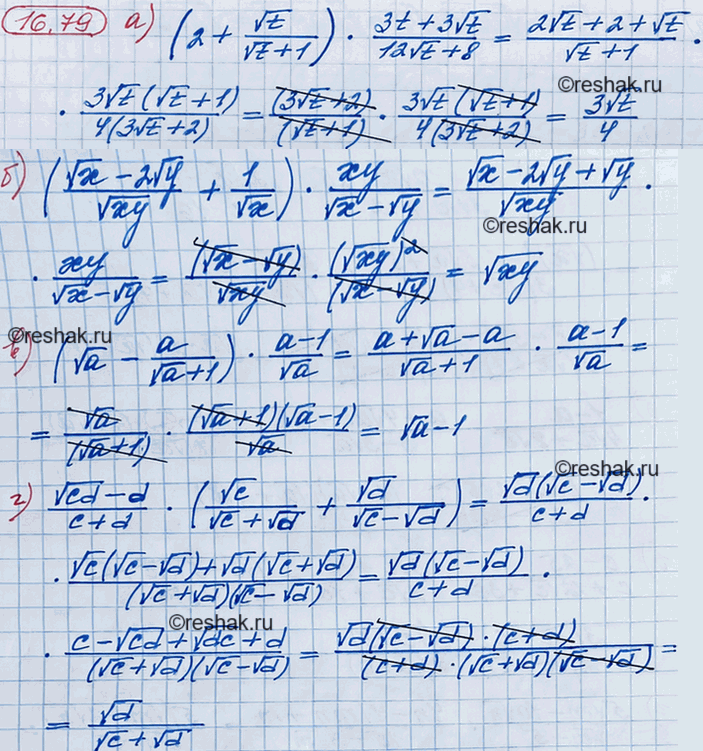 16.79 а) (2 + √t/(√t+1)) · (3t+3√t)/(12√t+8) = (2√t+2+√t)/(√t+1) ·
· 3√t(√t+1)/4(3√t+2) = (3√t+2)/(√t+1) · 3√t(√t+1)/4(3√t+2) = 3√t/4
©reshak.ru
б) ((√x-2√y)/√xy + 1/√x) · xy/(√x-√y) = (√x-2√y+√y)/√xy ·
©reshak.ru
· xy/(√x-√y) = (√x-√y)/√xy · (√xy)²/(√x-√y) = √xy
©reshak.ru
в) (√a - a/(√a+1)) · (a-1)/√a = (a+√a-a)/(√a+1) · (a-1)/√a =
= √a/(√a+1) · (√a+1)(√a-1)/√a = √a-1
©reshak.ru
г) (√cd-d)/(c+d) · (√c/(√c+√d) + √d/(√c-√d)) = √d(√c-√d)/(c+d) ·
· (√c(√c-√d)+√d(√c+√d))/(√c+√d)(√c-√d) = √d(√c-√d)/(c+d) ·
©reshak.ru
· (c-√cd+√dc+d)/(√c+√d)(√c-√d) = √d(√c-√d)·(c+d)/(c+d)·(√c+√d)(√c-√d) =
= √d/(√c+√d)